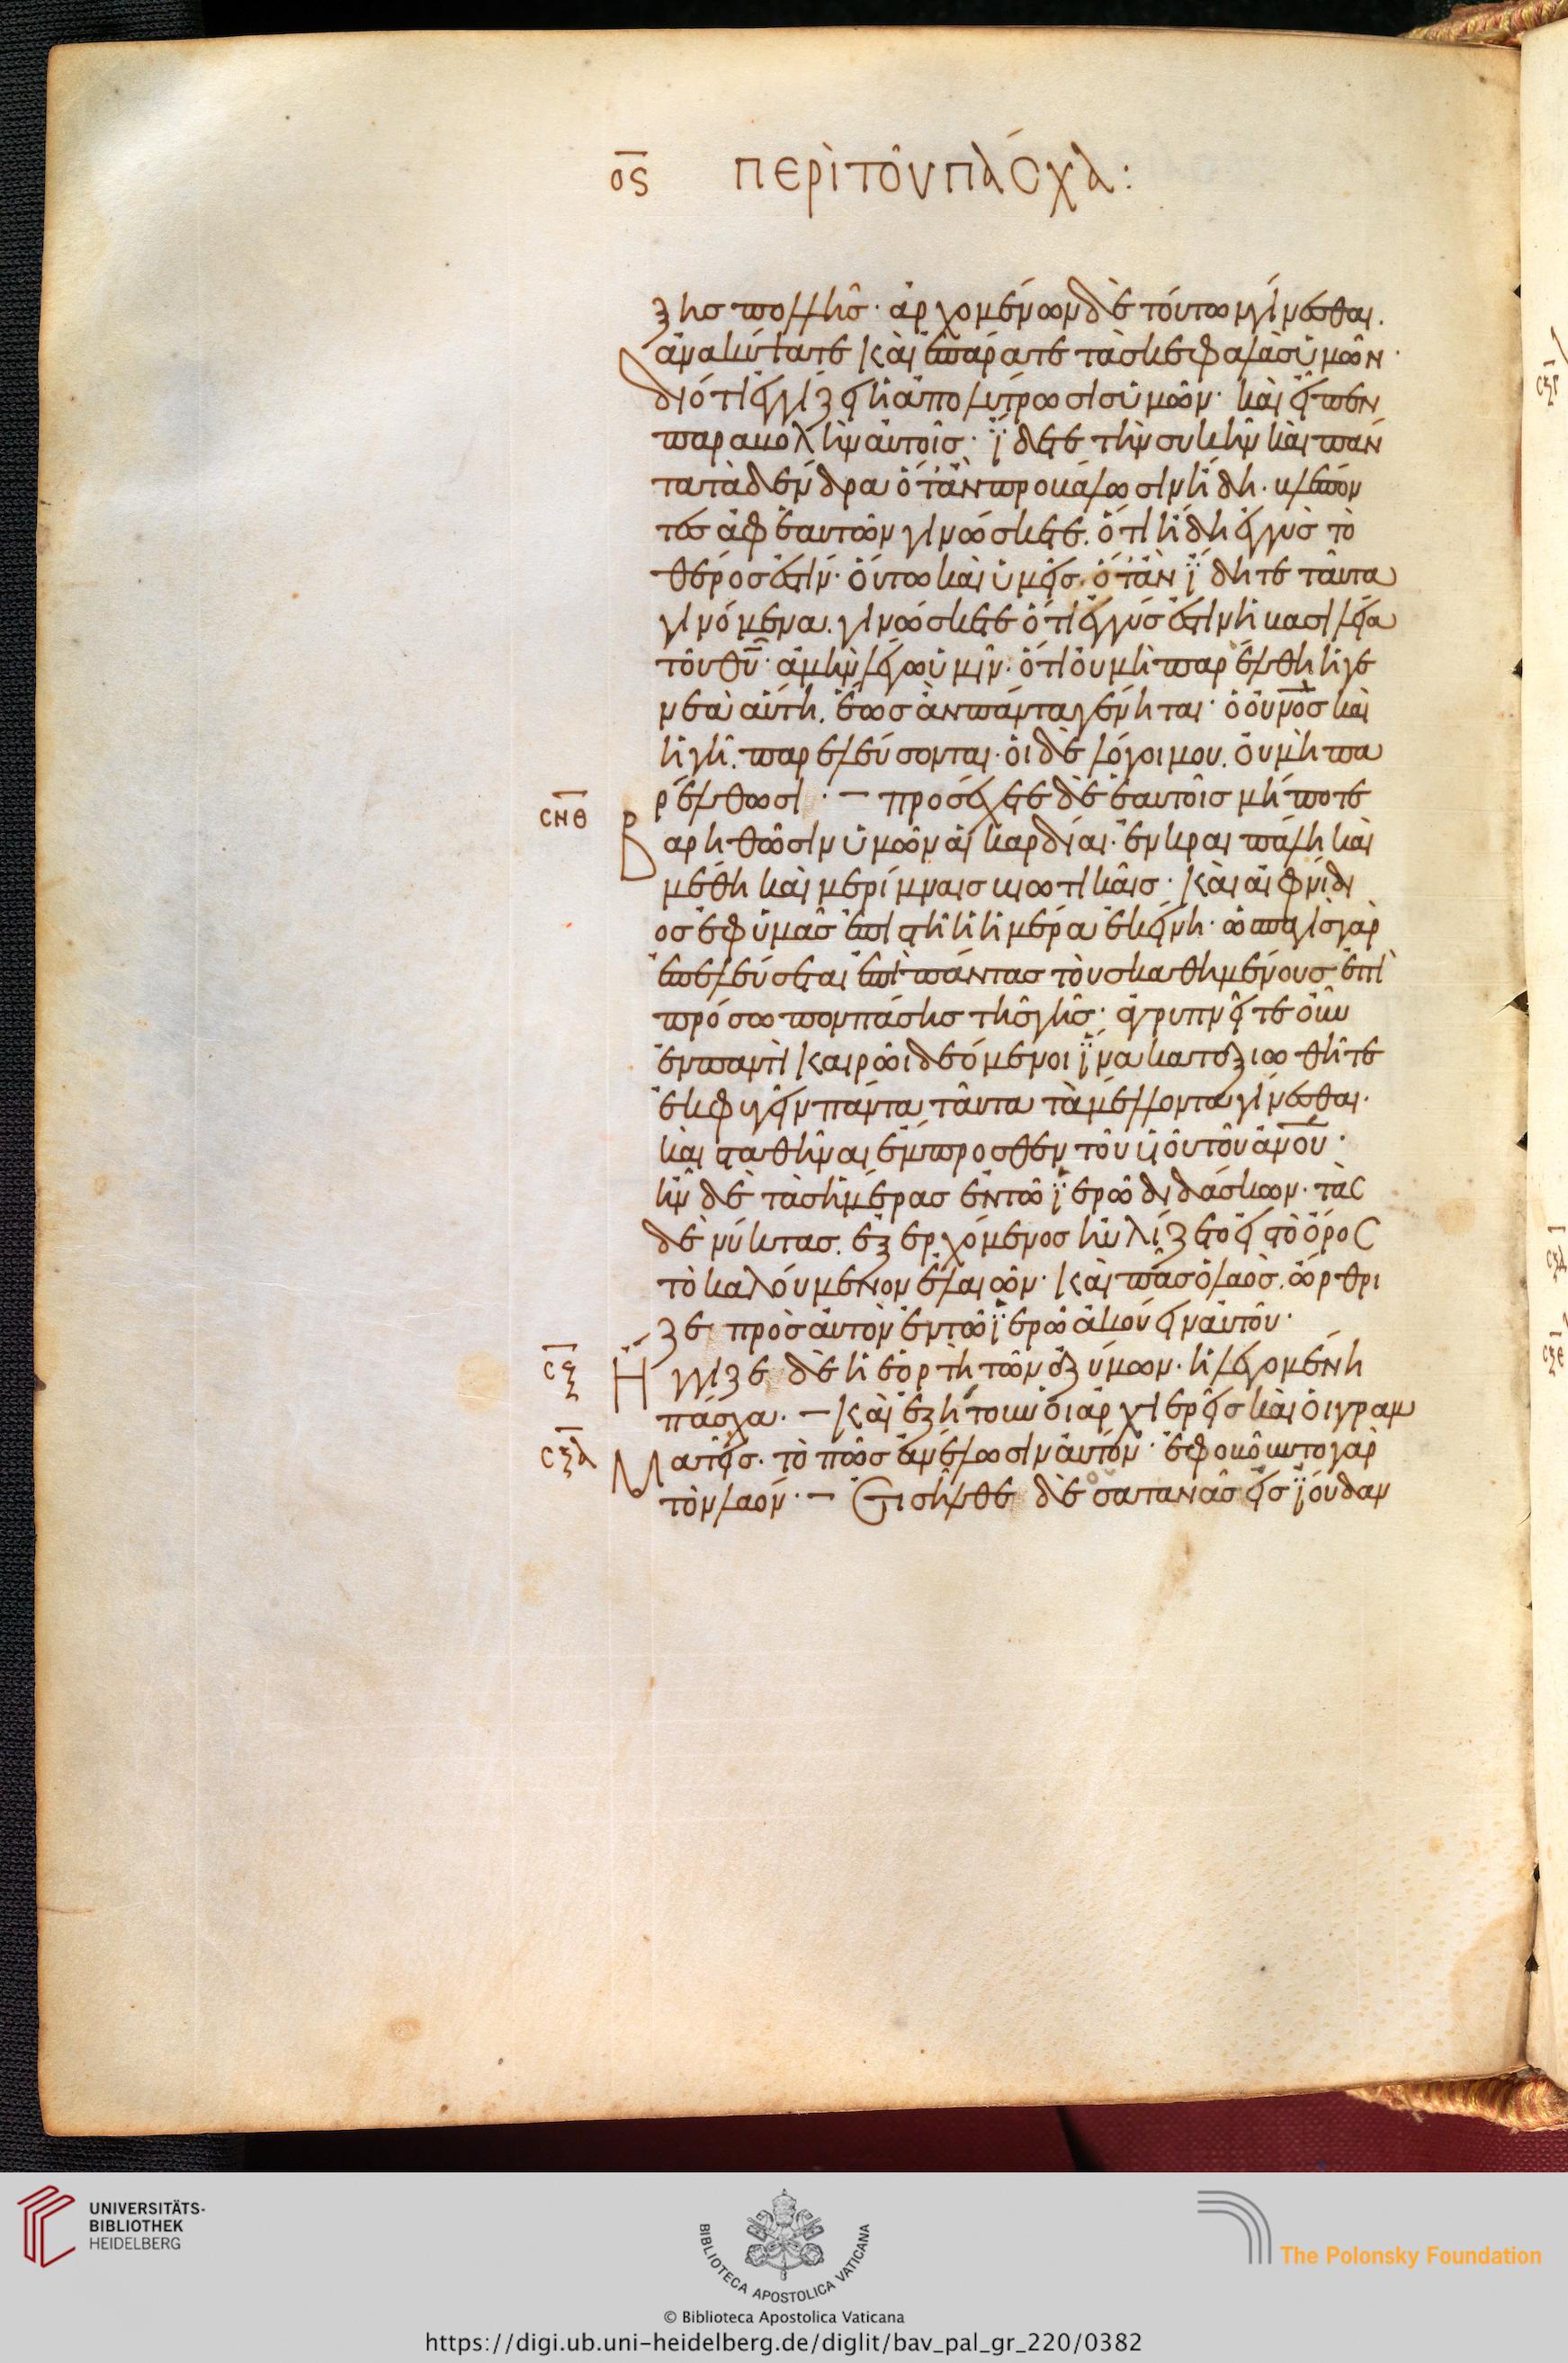 ος ΠΕΡὶ ΤΟῦ ΠΆCΧΑ:
ξης πολλῆς· ἀρχομένων δὲ τούτων γίνεσθαι.
ἀνακύψατε καὶ ἐπάρατε τὰς κεφαλὰς ὑμῶν·
διότι ἐγγίζει ἡ ἀπολύτρωσις ὑμῶν· καὶ εἶπεν
παραβολὴν αὐτοῖς· ἴδετε τὴν συκὴν καὶ πάν
τα τὰ δένδρα ὅτὰν προβάλωσιν ἤδη. βλέπον
τες ἀφ ἑαυτῶν γινώσκετε. ὅτι ἤδη ἐγγὺς τὸ
θέρος ἐστίν· οὕτω καὶ ὑμεῖς. ὅτὰν ἴδητε ταῦτα
γινόμενα. γινώσκετε ὅτι ἐγγύς ἐστιν ἡ βασιλεία
τοῦ θῦ· ἀμὴν λέγω ὑμῖν· ὅτι οὐ μὴ παρέλθη ἡ γε
νεὰ αὕτη. ἕως ἂν πάντα γένηται· ὁ οὐνος καὶ
ἡ γῆ. παρελεύσονται· οἱ δὲ λόγοι μου. οὐ μὴ πα
ρέλθωσι· – προσέχετε δὲ ἑαυτοῖς μήποτε
CΝΘ Βαρηθῶσιν ὑμῶν αἱ καρδίαι· ἐν κραιπάλη καὶ
μέθη καὶ μερίμναις βιωτικαῖς· καὶ αἰφνίδι
ος ἐφ ὑμᾶς ἐπιστῆ ἡ ἡμέρα ἐκείνη· ὡς παγὶς γὰρ
ἐπελεύσεται ἐπὶ πάντας τοὺς καθημένους ἐπὶ
πρόσωπον πάσης τῆς γῆς· ἀγρυπνεῖτε οὖν
ἐν παντὶ καιρῶι δεόμενοι ἵνα καταξιωθῆτε
ἐκφυγεῖν πάντα ταῦτα τὰ μέλλοντα γίνεσθαι.
καὶ σταθῆναι ἔμπροσθεν τοῦ υἱοῦ τοῦ ἀνου·
ἦν δὲ τὰς ἡμέρας ἐν τῶ ἱερῶ διδάσκων· τὰς
δὲ νύκτας. ἐξερχόμενος ηὐλίζετο εἰς τὸ ὄρος
τὸ καλούμενον ἐλαιῶν· καὶ πᾶς ὁ λαὸς. ὤρθρι
ζε πρὸς αὐτὸν ἐν τῶ ἱερῶ ἀκούειν αὐτοῦ·
CΞ Ἤγγιζε δὲ ἡ ἑορτὴ τῶν ἀζύμων· ἡ λεγομένη
πάσχα· – καὶ ἐζήτουν οἱ ἀρχιερεῖς καὶ οἱ γραμ
CΞΑ Ματεῖς. τὸ πῶς ἀνέλωσιν αὐτόν· ἐφοβοῦντο γὰρ
τὸν λαόν· – Εἰσῆλθε δὲ σατανᾶς εἰς ἰούδαν
UNIVERSITÄTS-
BIBLIOTHEK
HEIDELBERG
BIBLIOTECA APOSTOLICA VATICANA
© Biblioteca Apostolica Vaticana
The Polonsky Foundation
https://digi.ub.uni-heidelberg.de/diglit/bav_pal_gr_220/0382